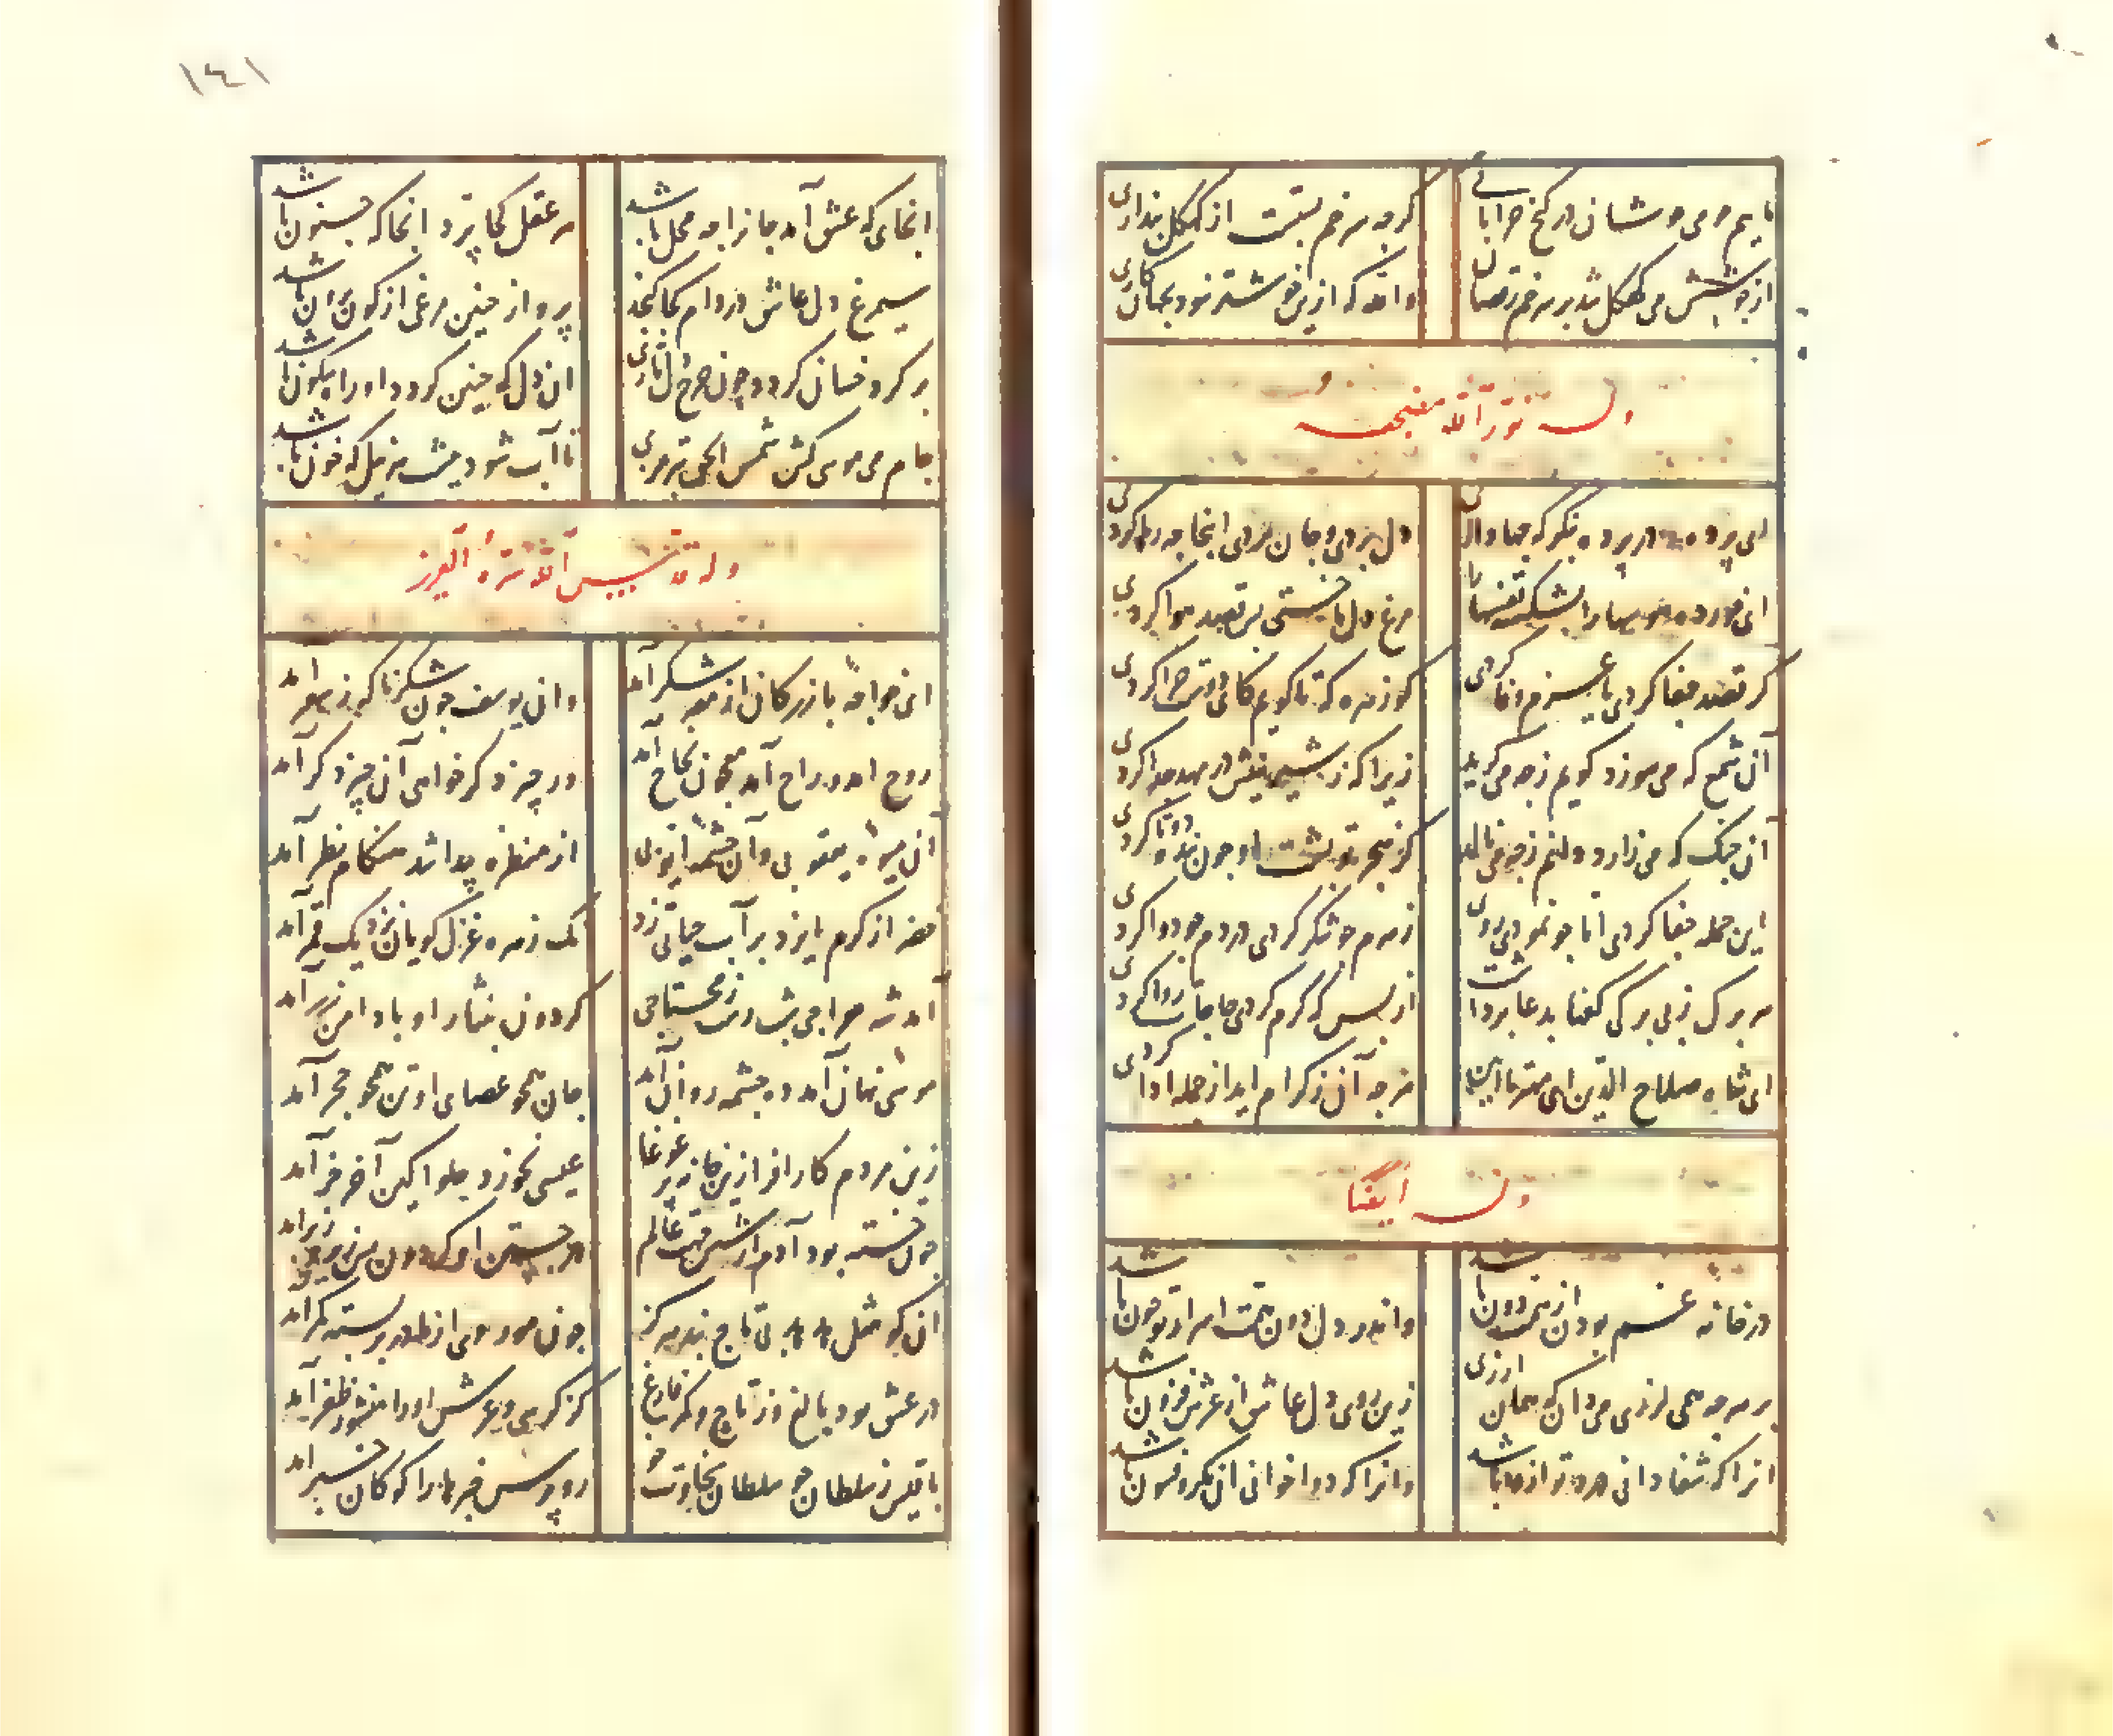 ماییم و می و شانان در کنج خراباتی
گرچه سر خم بستست از کهگل پنداری
از جوشش می کهگل شد بر سر خم رقصان
والله که ازین خوشتر نبود بجهان کاری
وله نور الله مضجعه
ای پرده در پرده بنگر که چها کردی
دل بردی و جان بردی اینجا چه رها کردی
ای برده هوسها را بشکسته قفسها را
مرغ دل ما خستی پس قصد هوا کردی
گر قصد جفا کردی با عیسم وفا کردی
کو زهره که تا گویم کای دوست چرا کردی
آن شمع که می سوزد گویم ز چه می گرید
زیرا که ز شیرینش در صد جدا کردی
آن چنگ که می زارد دانم ز چه می نالد
کز هجر تو پشت او چون بنده دوتا کردی
این جمله جفا کردی اما چو نمودی روی
زهرم چو شکر کردی دردم چو دوا کردی
هر برگ ز بی برگی کفها بدعا برداشت
از بس که کرم کردی حاجات روا کردی
ای شاه صلاح الدین
وله ایضا
در خانه غم بودن از همت دون باشد
واندر دل دون همت اسرار تو چون باشد
بر هرچه همی لرزی می دان که همان ارزی
زین روی دل عاشق از عرش فزون باشد
آنرا که شفا دانی درد تو از آن باشد
وانرا که دوا خوانی آن مکر و فسون باشد
١٤١
انجای که عشق آمد جانرا چه محل باشد
هر عقل کجا پرد انجا که جنون باشد
سیمرغ دل عاشق در دام کجا گنجد
پرواز چنین مرغی از کون برون باشد
بر گرد خسان گردد چون چرخ دل تاری
آن دل که چنین گردد او را چه سکون باشد
جام می موسی کش شمس الحق تبریزی
تا آب شود پیشت هر نیل که خون باشد
وله قدس الله سره العزیز
آن خواجه بازرگان از مصر شکر آمد
وان یوسف چون شکر ناگه ز سفر آمد
روح آمد و راح آمد معجون نجاح آمد
ور چیز دگر خواهی آن چیز دگر آمد
آن میوه یعقوبی وان چشمه ایوبی
از منظره پیدا شد هنگام نظر آمد
خضر از کرم ایزد بر آب حیاتی زد
نک زهره غزل گویان نزدیک قمر آمد
آمد شه معراجی شب رست ز محتاجی
گردون بنثار او با دامن زر آمد
موسی نهان آمد ده چشمه روان آمد
جان همچو عصای او تن همچو حجر آمد
زین مردم کار افزا زین خانه پر غوغا
عیسی نخورد حلوا کین آخر خر آمد
چون خسته بود آدم از شش جهت عالم
در جستن او گردون
آن کو مثل هدهد بی تاج نبد هرگز
چون مور ز مادر او بربسته کمر آمد
در عشق بود بالغ وز تاج و کمر فارغ
کز کرسی و عرش او را منشور ظفر آمد
باقیش ز سلطان جو سلطان سخاوت خو
زو پرس خبرها را کو کان خبر آمد